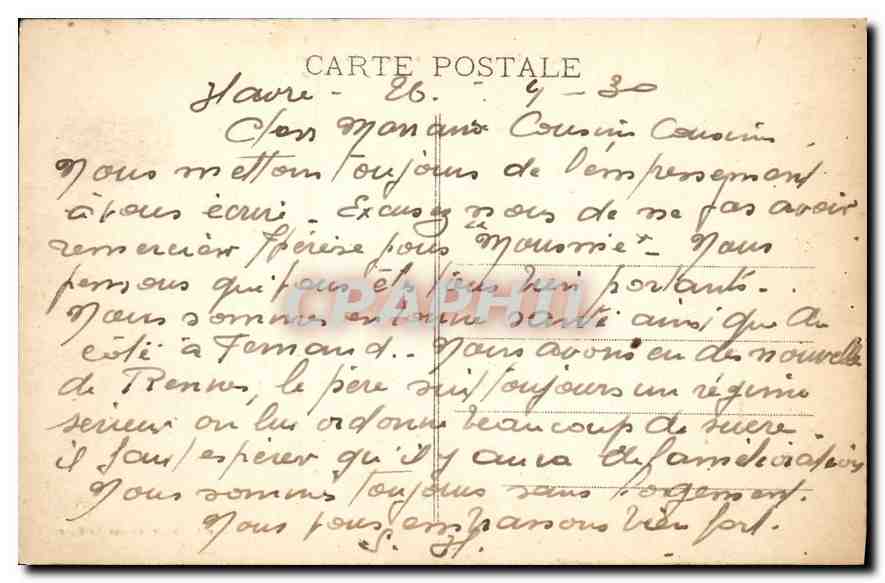 CARTE POSTALE
Havre - 26. - 4 - 30
Cousin Cousine
Nous mettons toujours de l'empressement
à vous écrire - Excusez nous de ne pas avoir
remercier Thérèse pour "
- Nous
pensons que vous êtes tous bien portants -
CPAPHIL
Nous sommes en bonne santé ainsi que du
côté à Fernand.. - Nous avons eu des nouvelle
de Rennes, le père suit toujours un régime
serieux on lui ordonne beaucoup de sucre
il faut espérer qu'il y aura de l'amélioration
Nous sommes toujours sans logement.
Nous vous embrassons bien fort.
S. H.